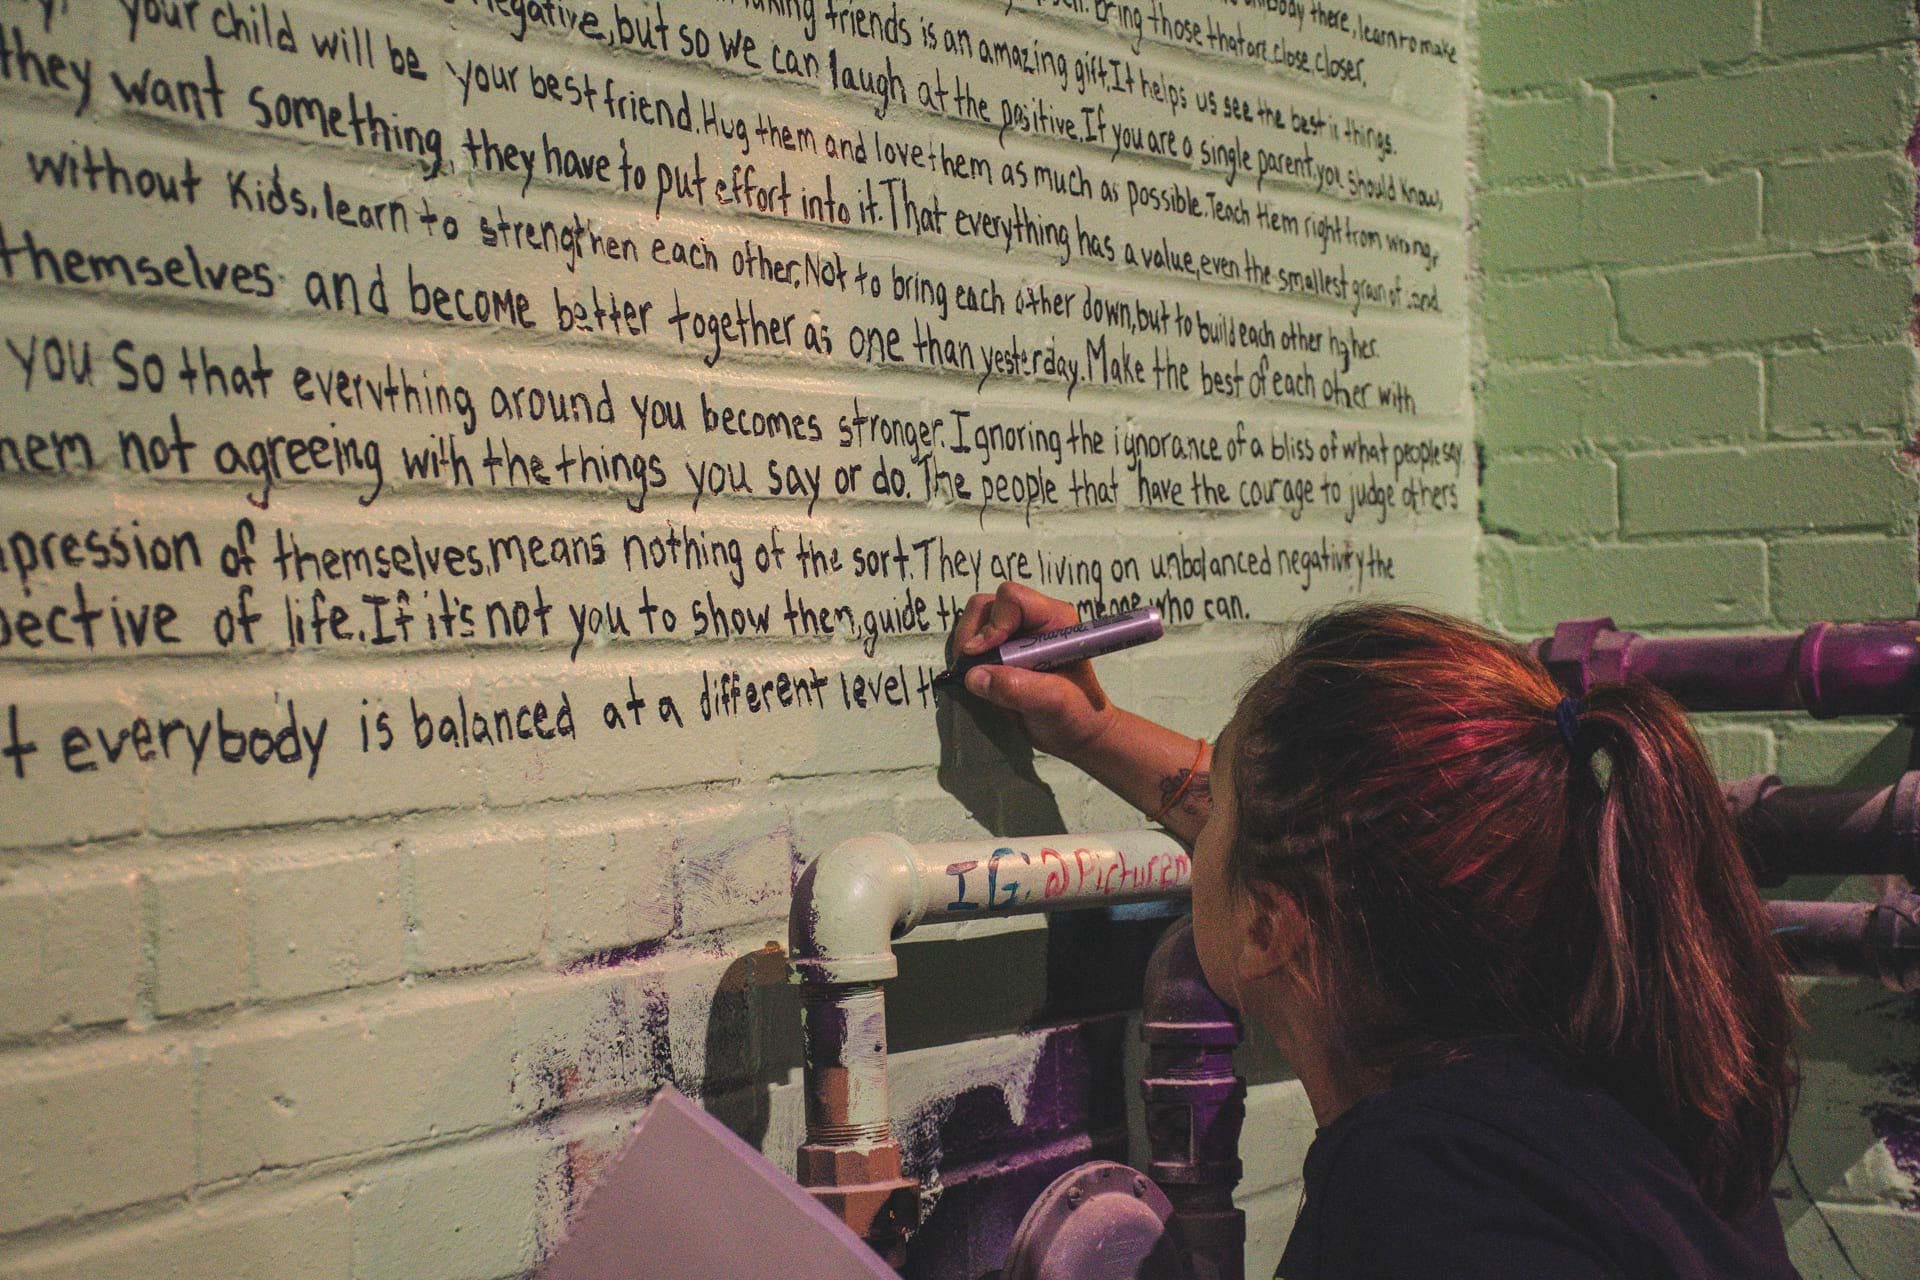 body there, learn to make
Bring those that are close, closer.
making friends is an amazing gift. It helps us see the best in things.
negative, but so we can laugh at the positive. If you are a single parent, you should know,
your child will be your best friend. Hug them and love them as much as possible. Teach them right from wrong,
they want something, they have to put effort into it. That everything has a value, even the smallest grain of sand.
without Kids, learn to strengthen each other. Not to bring each other down, but to build each other higher.
themselves and become better together as one than yesterday. Make the best of each other with
you so that everything around you becomes stronger. Ignoring the ignorance of a bliss of what people say
hem not agreeing with the things you say or do. The people that have the courage to judge others
pression of themselves, means nothing of the sort. They are living on unbalanced negativity the
pective of life. If it's not you to show them, guide th meone who can.
t everybody is balanced at a different level th
Sharpie
IG: @Picturem